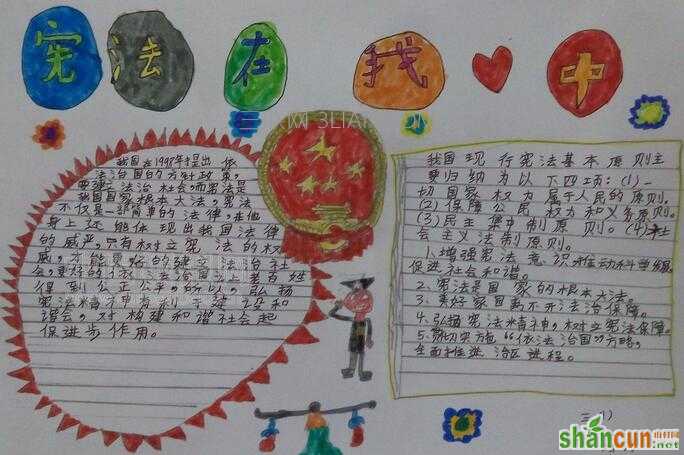 宪法在我心中
我国在1998年提出依
法治国的方针政策，
要建立法治社会，而宪法是
国家根本大法，宪法
不仅是一部简单的法律，在他
身上还能体现出我国法律
的威严，只有树立宪法的权
威，才能更好的建立法治社
会，更好的依法治国让老百姓
得到公正公平，所以，弘扬
宪法精神
谐会，对构建和谐社会起
促进步作用。
我国现行宪法基本原则主
要归纳为以下四项：(1)一
切国家权力属于人民的原则。
(2)保障公民权力和义务原则。
(3)民主集中制原则。(4)社
会主义法制原则。
1、增强宪法意识推动科学发展
促进社会和谐。
2、宪法是国家的根本大法。
3、美好家园离不开法治保障。
4、弘扬宪法精神，树立宪法保障。
5、贯切实施“依法治国”方略，
全面推进治区进程。
网 3LIAN
三(1)
shancun
.net